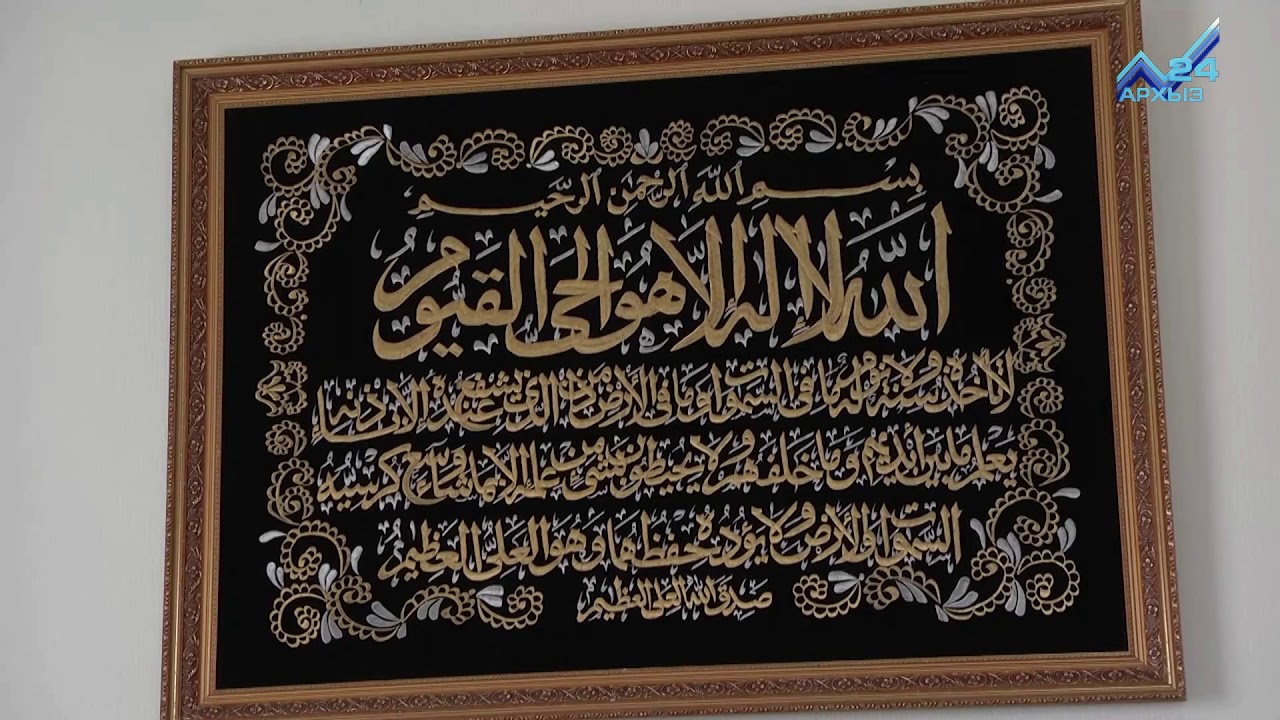 24
АРХЫЗ
بِسْمِ اللّٰهِ الرَّحْمٰنِ الرَّحِيمِ
اللّٰهُ لَا إِلٰهَ إِلَّا هُوَ الْحَيُّ الْقَيُّومُ
لَا تَأْخُذُهُ سِنَةٌ وَلَا نَوْمٌ لَهُ مَا فِي السَّمٰوَاتِ وَمَا فِي الْأَرْضِ مَنْ ذَا الَّذِي يَشْفَعُ عِنْدَهُ إِلَّا بِإِذْنِهِ
يَعْلَمُ مَا بَيْنَ أَيْدِيهِمْ وَمَا خَلْفَهُمْ وَلَا يُحِيطُونَ بِشَيْءٍ مِنْ عِلْمِهِ إِلَّا بِمَا شَاءَ وَسِعَ كُرْسِيُّهُ
السَّمٰوَاتِ وَالْأَرْضَ وَلَا يَؤُدُهُ حِفْظُهُمَا وَهُوَ الْعَلِيُّ الْعَظِيمُ
صَدَقَ اللّٰهُ الْعَلِيُّ الْعَظِيمُ